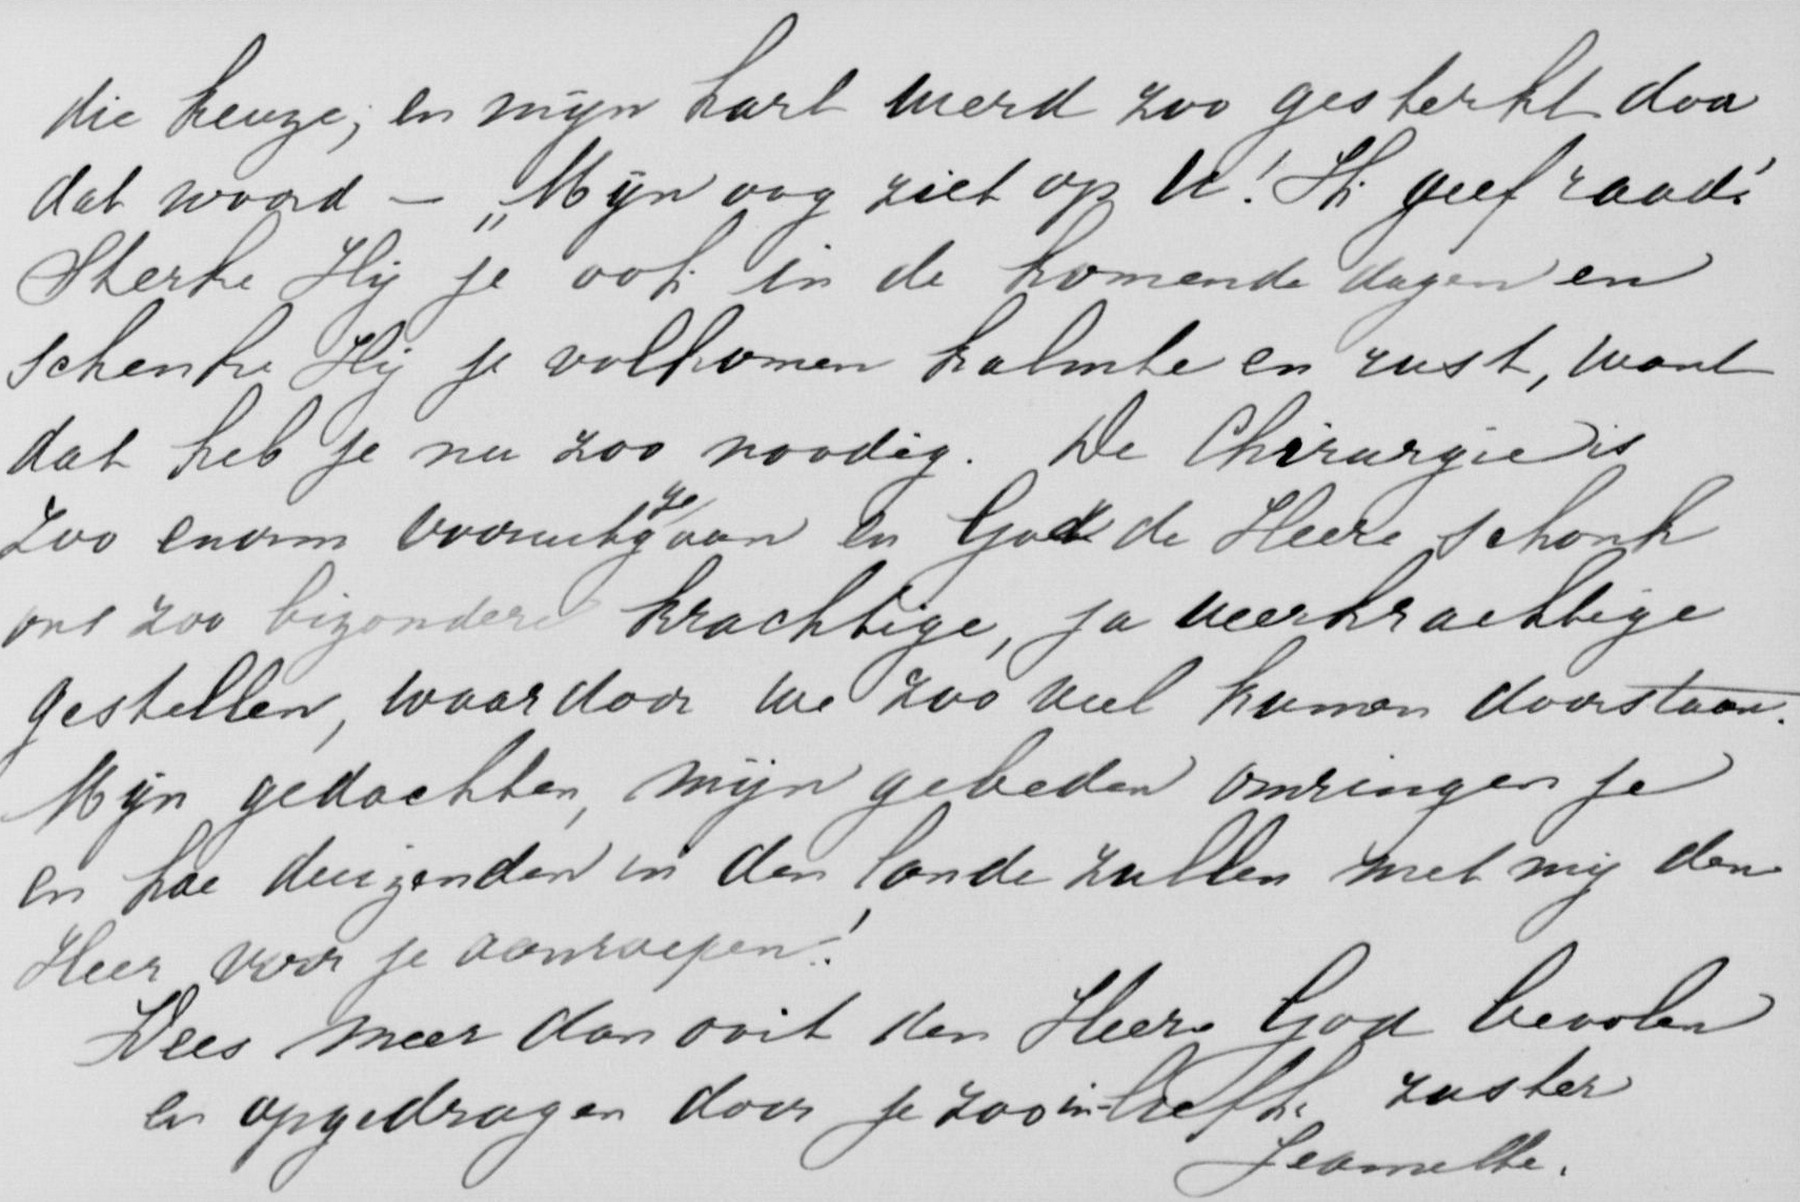 die keuze, en mijn hart werd zoo gesterkt door
dat woord — „Mijn oog ziet op U! Ik geef raad!
Sterke Hij je ook in de komende dagen en
schenke Hij je volkomen kalmte en rust, want
dat heb je nu zoo noodig. De Chirurgie is
zoo enorm vooruitgegaan en God de Heere schonk
ons zoo bizondere krachtige, ja veerkrachtige
gestellen, waardoor we zoo veel kunnen doorstaan.
Mijn gedachten, mijn gebeden omringen je
en hoe duizenden in den lande zullen met mij den
Heer voor je aanroepen!
Wees meer dan ooit den Heere God bevolen
en opgedragen door je zoo in-liefh. zuster
Jeannette.